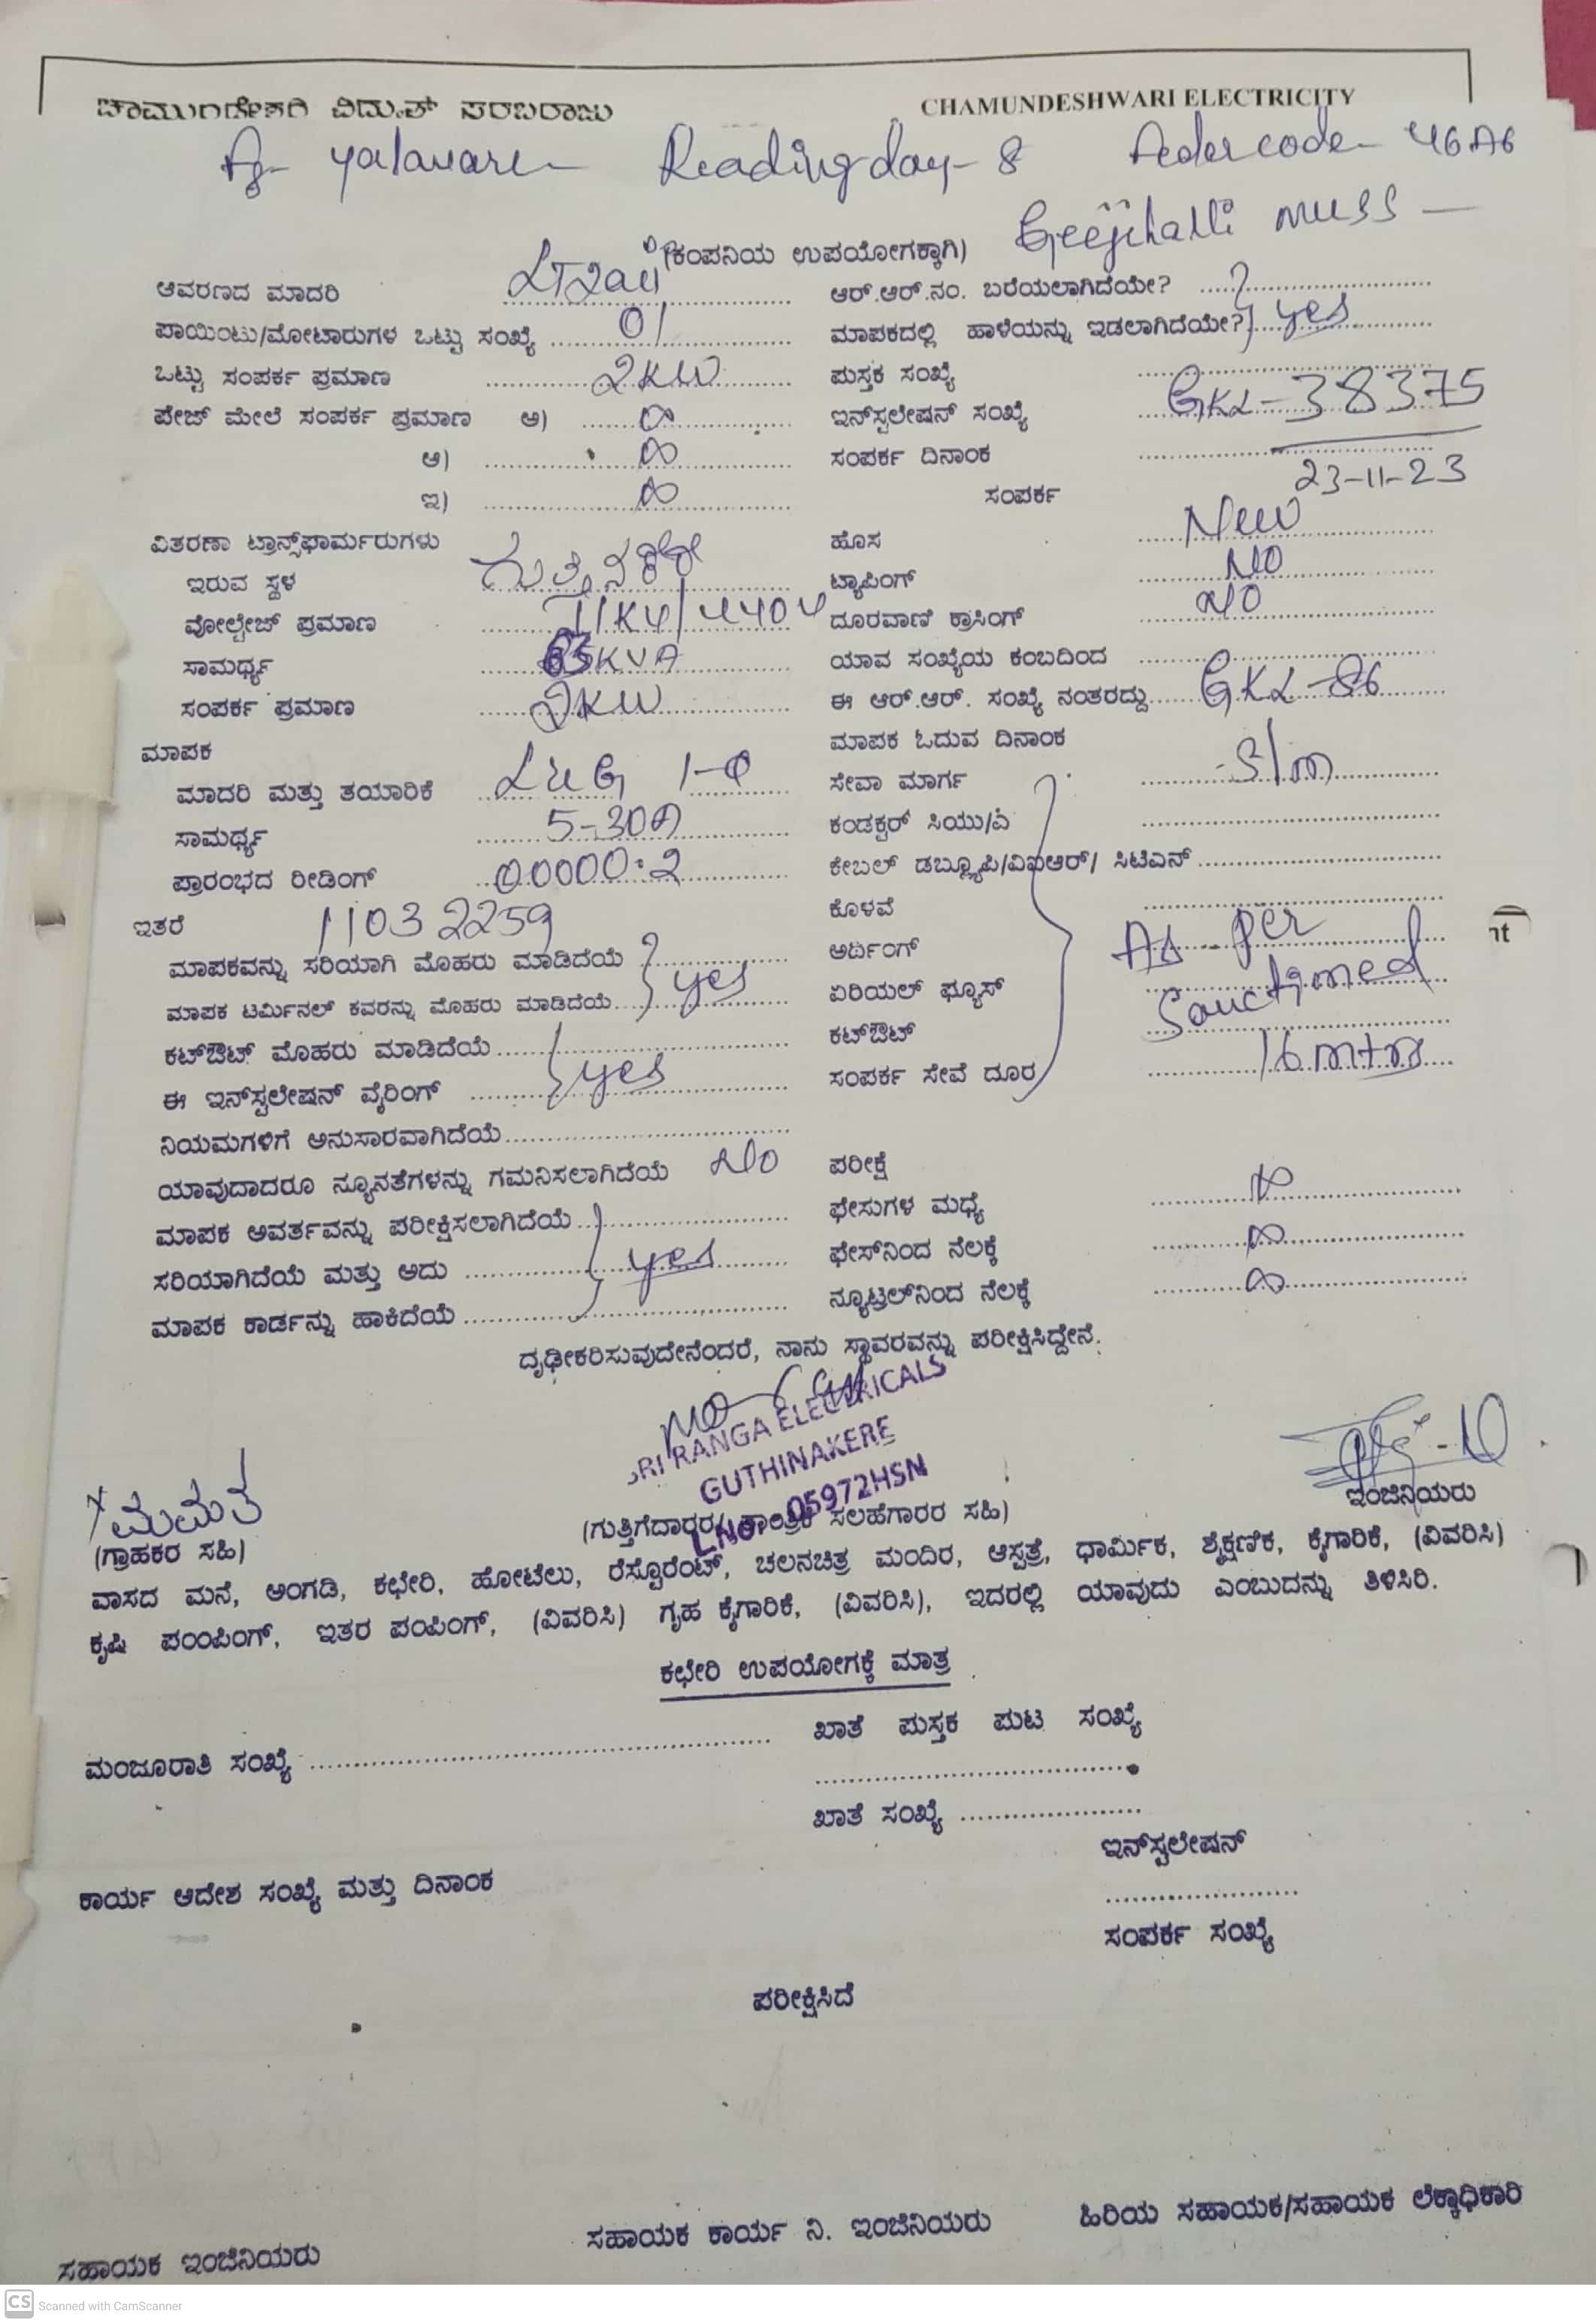 ಚಾಮುಂಡೇಶ್ವರಿ ವಿದ್ಯುತ್ ಸರಬರಾಜು CHAMUNDESHWARI ELECTRICITY
Reading day- 8 code- 46A6
(ಕಂಪನಿಯ ಉಪಯೋಗಕ್ಕಾಗಿ) MUSS
ಆವರಣದ ಮಾದರಿ ಆರ್.ಆರ್.ನಂ. ಬರೆಯಲಾಗಿದೆಯೇ?
ಪಾಯಿಂಟು/ಮೋಟಾರುಗಳ ಒಟ್ಟು ಸಂಖ್ಯೆ 01 ಮಾಪಕದಲ್ಲಿ ಹಾಳೆಯನ್ನು ಇಡಲಾಗಿದೆಯೇ? yes
ಒಟ್ಟು ಸಂಪರ್ಕ ಪ್ರಮಾಣ 2KW ಪುಸ್ತಕ ಸಂಖ್ಯೆ
ಪೇಜ್ ಮೇಲೆ ಸಂಪರ್ಕ ಪ್ರಮಾಣ ಅ) ಇನ್‌ಸ್ಟಲೇಷನ್ ಸಂಖ್ಯೆ GKL-38375
ಆ) ಸಂಪರ್ಕ ದಿನಾಂಕ 23-11-23
ಇ) ಸಂಪರ್ಕ
ವಿತರಣಾ ಟ್ರಾನ್ಸ್‌ಫಾರ್ಮರುಗಳು ಹೊಸ New
ಇರುವ ಸ್ಥಳ ಟ್ಯಾಪಿಂಗ್ NO
ವೋಲ್ಟೇಜ್ ಪ್ರಮಾಣ 11KV/440V ದೂರವಾಣಿ ಕ್ರಾಸಿಂಗ್ NO
ಸಾಮರ್ಥ್ಯ 63KVA ಯಾವ ಸಂಖ್ಯೆಯ ಕಂಬದಿಂದ
ಸಂಪರ್ಕ ಪ್ರಮಾಣ 2KW ಈ ಆರ್.ಆರ್. ಸಂಖ್ಯೆ ನಂತರದ್ದು GKL-86
ಮಾಪಕ ಮಾಪಕ ಓದುವ ದಿನಾಂಕ
ಮಾದರಿ ಮತ್ತು ತಯಾರಿಕೆ L&G 1-Φ ಸೇವಾ ಮಾರ್ಗ S/m
ಸಾಮರ್ಥ್ಯ 5-30A ಕಂಡಕ್ಟರ್ ಸಿಯು/ಎ
ಪ್ರಾರಂಭದ ರೀಡಿಂಗ್ 00000.2 ಕೇಬಲ್ ಡಬ್ಲ್ಯೂಪಿ/ವಿಐಆರ್/ ಸಿಟಿಎನ್
ಇತರೆ 11032259 ಕೊಳವೆ
ಮಾಪಕವನ್ನು ಸರಿಯಾಗಿ ಮೊಹರು ಮಾಡಿದೆಯೆ ಅರ್ದಿಂಗ್ As per
ಮಾಪಕ ಟರ್ಮಿನಲ್ ಕವರನ್ನು ಮೊಹರು ಮಾಡಿದೆಯೆ yes ಏರಿಯಲ್ ಫ್ಯೂಸ್ Sanctioned
ಕಟ್‌ಔಟ್ ಮೊಹರು ಮಾಡಿದೆಯೆ ಕಟ್‌ಔಟ್
ಈ ಇನ್‌ಸ್ಟಲೇಷನ್ ವೈರಿಂಗ್ yes ಸಂಪರ್ಕ ಸೇವೆ ದೂರ 16 mtrs
ನಿಯಮಗಳಿಗೆ ಅನುಸಾರವಾಗಿದೆಯೆ
ಯಾವುದಾದರೂ ನ್ಯೂನತೆಗಳನ್ನು ಗಮನಿಸಲಾಗಿದೆಯೆ No ಪರೀಕ್ಷೆ
ಮಾಪಕ ಅವರ್ತವನ್ನು ಪರೀಕ್ಷಿಸಲಾಗಿದೆಯೆ ಫೇಸುಗಳ ಮಧ್ಯೆ
ಸರಿಯಾಗಿದೆಯೆ ಮತ್ತು ಅದು yes ಫೇಸ್‌ನಿಂದ ನೆಲಕ್ಕೆ
ಮಾಪಕ ಕಾರ್ಡನ್ನು ಹಾಕಿದೆಯೆ ನ್ಯೂಟ್ರಲ್‌ನಿಂದ ನೆಲಕ್ಕೆ
ದೃಢೀಕರಿಸುವುದೇನೆಂದರೆ, ನಾನು ಸ್ಥಾವರವನ್ನು ಪರೀಕ್ಷಿಸಿದ್ದೇನೆ.
SRI RANGA ELECTRICALS
GUTHINAKERE
LNo. 05972HSN
ಮಮತ ಇಂಜಿನಿಯರು
(ಗ್ರಾಹಕರ ಸಹಿ) (ಗುತ್ತಿಗೆದಾರರ/ ತಾಂತ್ರಿಕ ಸಲಹೆಗಾರರ ಸಹಿ)
ವಾಸದ ಮನೆ, ಅಂಗಡಿ, ಕಛೇರಿ, ಹೋಟೆಲು, ರೆಸ್ಟೊರೆಂಟ್, ಚಲನಚಿತ್ರ ಮಂದಿರ, ಆಸ್ಪತ್ರೆ, ಧಾರ್ಮಿಕ, ಶೈಕ್ಷಣಿಕ, ಕೈಗಾರಿಕೆ, (ವಿವರಿಸಿ)
ಕೃಷಿ ಪಂಂಪಿಂಗ್, ಇತರ ಪಂಪಿಂಗ್, (ವಿವರಿಸಿ) ಗೃಹ ಕೈಗಾರಿಕೆ, (ವಿವರಿಸಿ), ಇದರಲ್ಲಿ ಯಾವುದು ಎಂಬುದನ್ನು ತಿಳಿಸಿರಿ.
ಕಛೇರಿ ಉಪಯೋಗಕ್ಕೆ ಮಾತ್ರ
ಮಂಜೂರಾತಿ ಸಂಖ್ಯೆ ಖಾತೆ ಪುಸ್ತಕ ಪುಟ ಸಂಖ್ಯೆ
ಖಾತೆ ಸಂಖ್ಯೆ
ಇನ್‌ಸ್ಟಲೇಷನ್
ಕಾರ್ಯ ಆದೇಶ ಸಂಖ್ಯೆ ಮತ್ತು ದಿನಾಂಕ
ಸಂಪರ್ಕ ಸಂಖ್ಯೆ
ಪರೀಕ್ಷಿಸಿದೆ
ಸಹಾಯಕ ಇಂಜಿನಿಯರು ಸಹಾಯಕ ಕಾರ್ಯ ನಿ. ಇಂಜಿನಿಯರು ಹಿರಿಯ ಸಹಾಯಕ/ಸಹಾಯಕ ಲೆಕ್ಕಾಧಿಕಾರಿ
CS Scanned with CamScanner